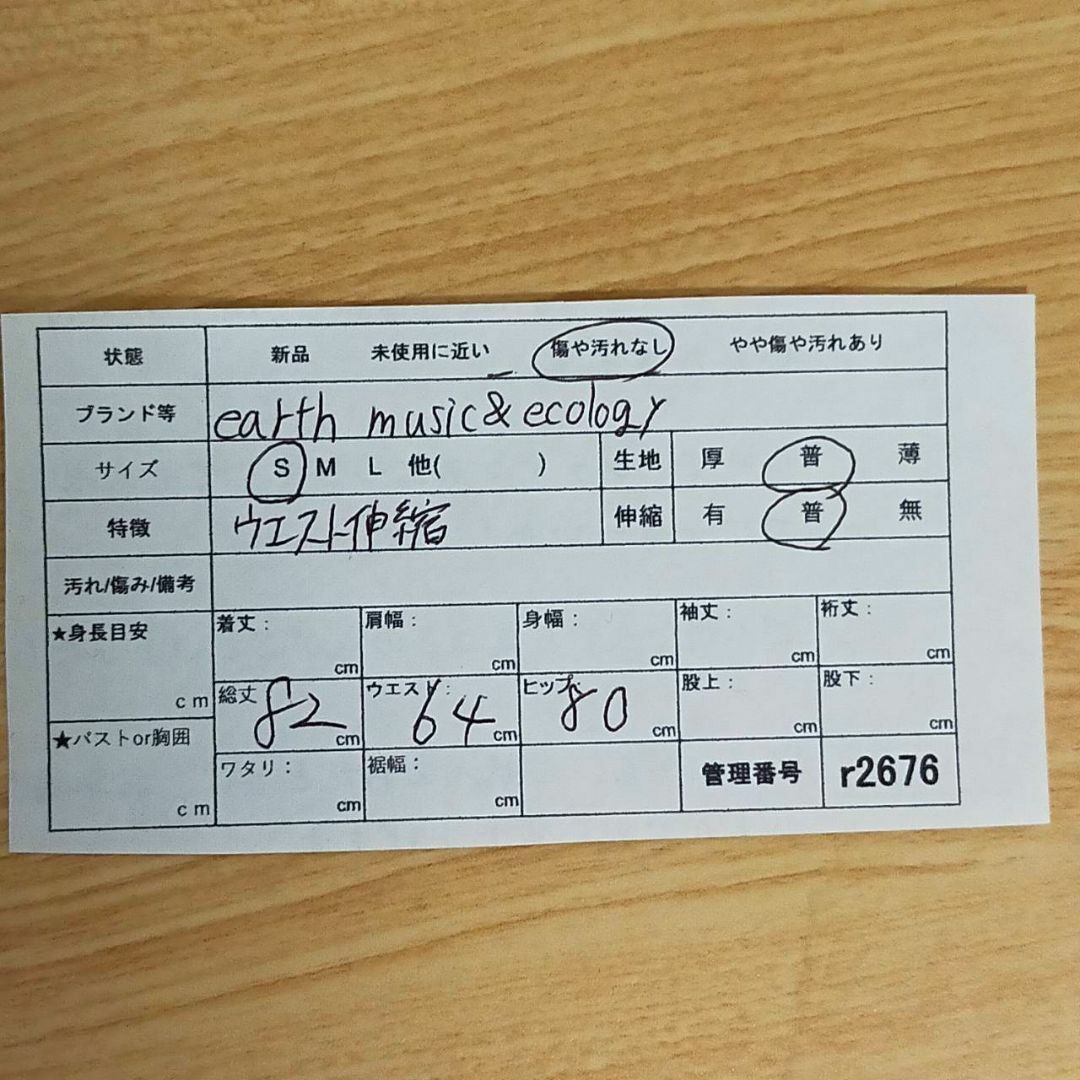 状態 新品 未使用に近い 傷や汚れなし やや傷や汚れあり
ブランド等 earth music&ecology
サイズ S M L 他( ) 生地 厚 普 薄
特徴 ウエスト伸縮 伸縮 有 普 無
汚れ/傷み/備考
★身長目安 cm 着丈: cm 肩幅: cm 身幅: cm 袖丈: cm 裄丈: cm
総丈 82 cm ウエスト: 64 cm ヒップ: 80 cm 股上: cm 股下: cm
★バストor胸囲 cm ワタリ: cm 裾幅: cm 管理番号 r2676